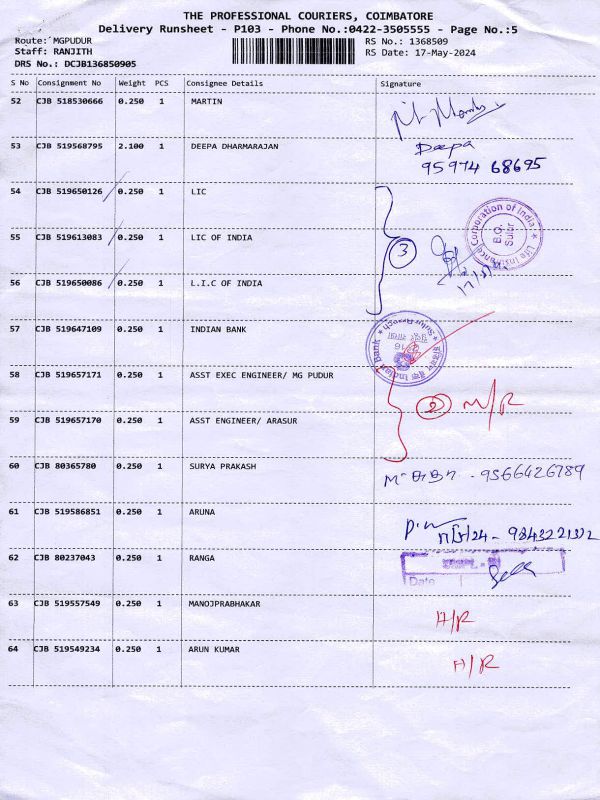 THE PROFESSIONAL COURIERS, COIMBATORE
Delivery Runsheet - P103 - Phone No.:0422-3505555 - Page No.:5
Route: MGPUDUR RS No.: 1368509
Staff: RANJITH RS Date: 17-May-2024
DRS No.: DCJB136850905
S No Consignment No Weight PCS Consignee Details Signature
52 CJB 518530666 0.250 1 MARTIN
53 CJB 519568795 2.100 1 DEEPA DHARMARAJAN Deepa
95974 68695
54 CJB 519650126 0.250 1 LIC
55 CJB 519613083 0.250 1 LIC OF INDIA 3
Life Insurance Corporation of India
B.O.
Sulur
56 CJB 519650086 0.250 1 L.I.C OF INDIA
57 CJB 519647109 0.250 1 INDIAN BANK
Indian Bank
Sulur Branch
58 CJB 519657171 0.250 1 ASST EXEC ENGINEER/ MG PUDUR
2 M/R
59 CJB 519657170 0.250 1 ASST ENGINEER/ ARASUR
60 CJB 80365780 0.250 1 SURYA PRAKASH 9566426789
61 CJB 519586851 0.250 1 ARUNA
62 CJB 80237043 0.250 1 RANGA
Date
63 CJB 519557549 0.250 1 MANOJPRABHAKAR H/R
64 CJB 519549234 0.250 1 ARUN KUMAR H/R